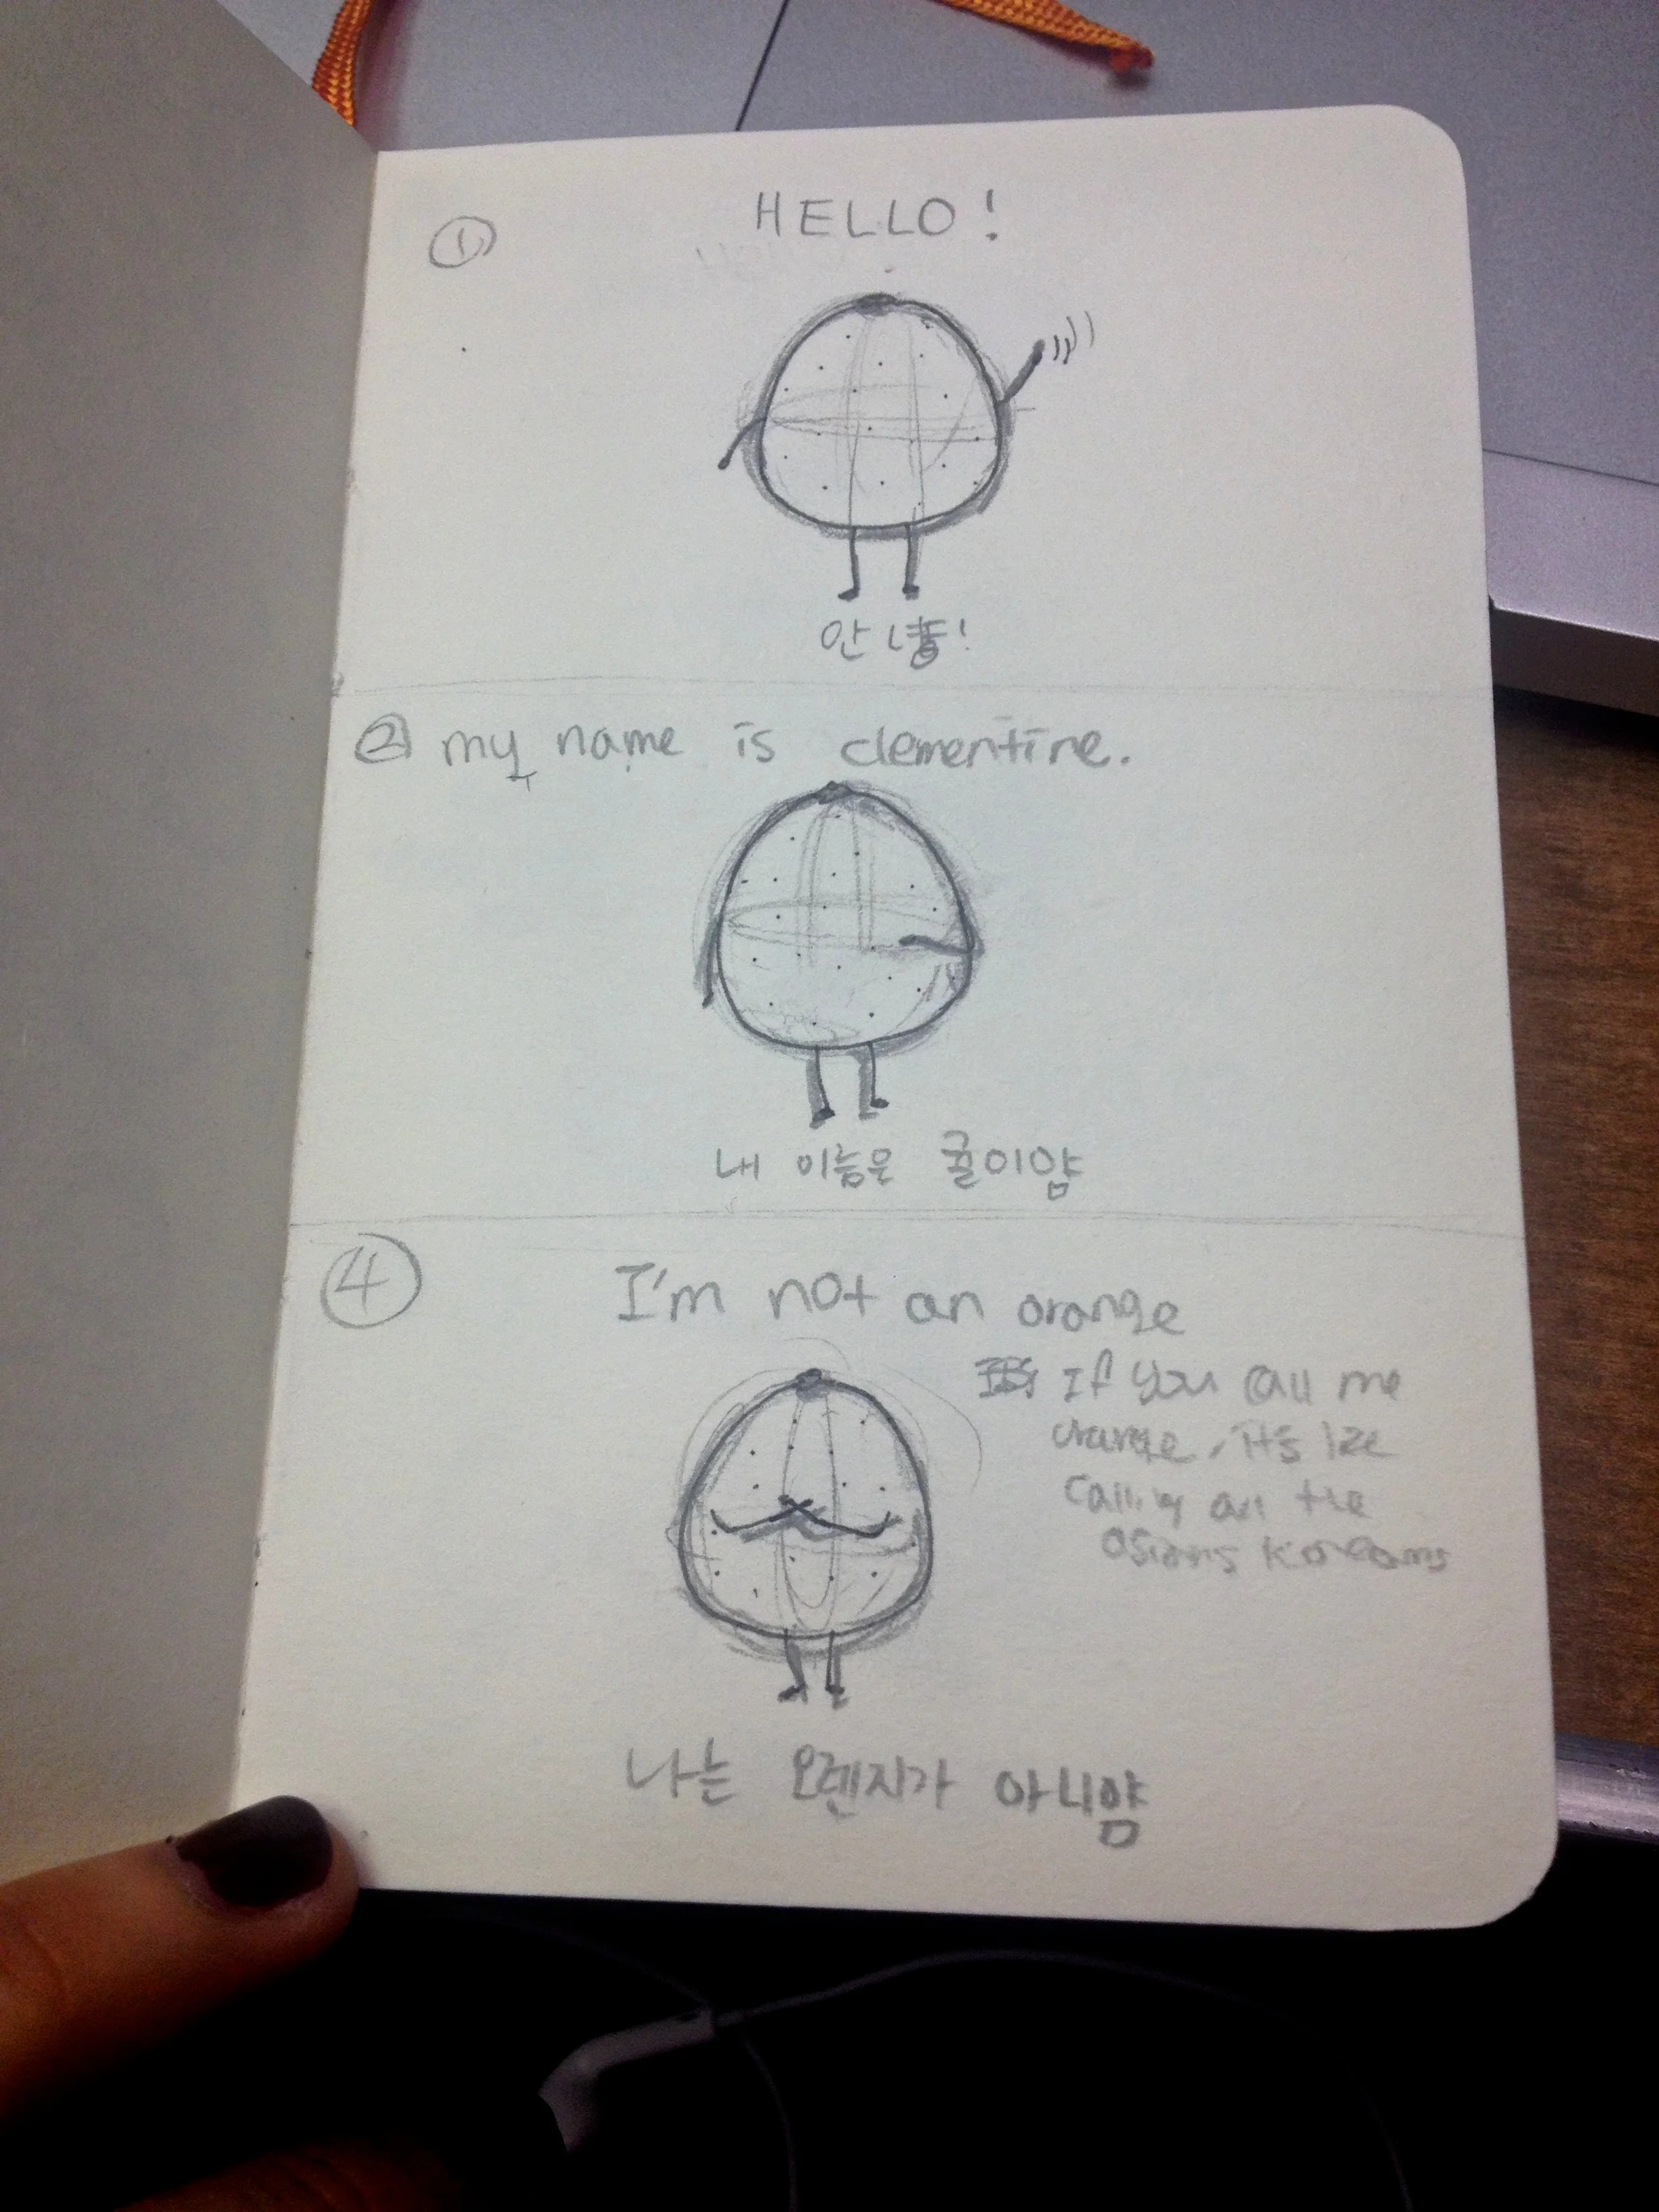 ①
HELLO!
안녕!
② my name is clementine.
내 이늠은 귤이얌
④
I'm not an orange
If you call me
orange, it's like
calling all the
asians koreans
나는 오렌지가 아니얌